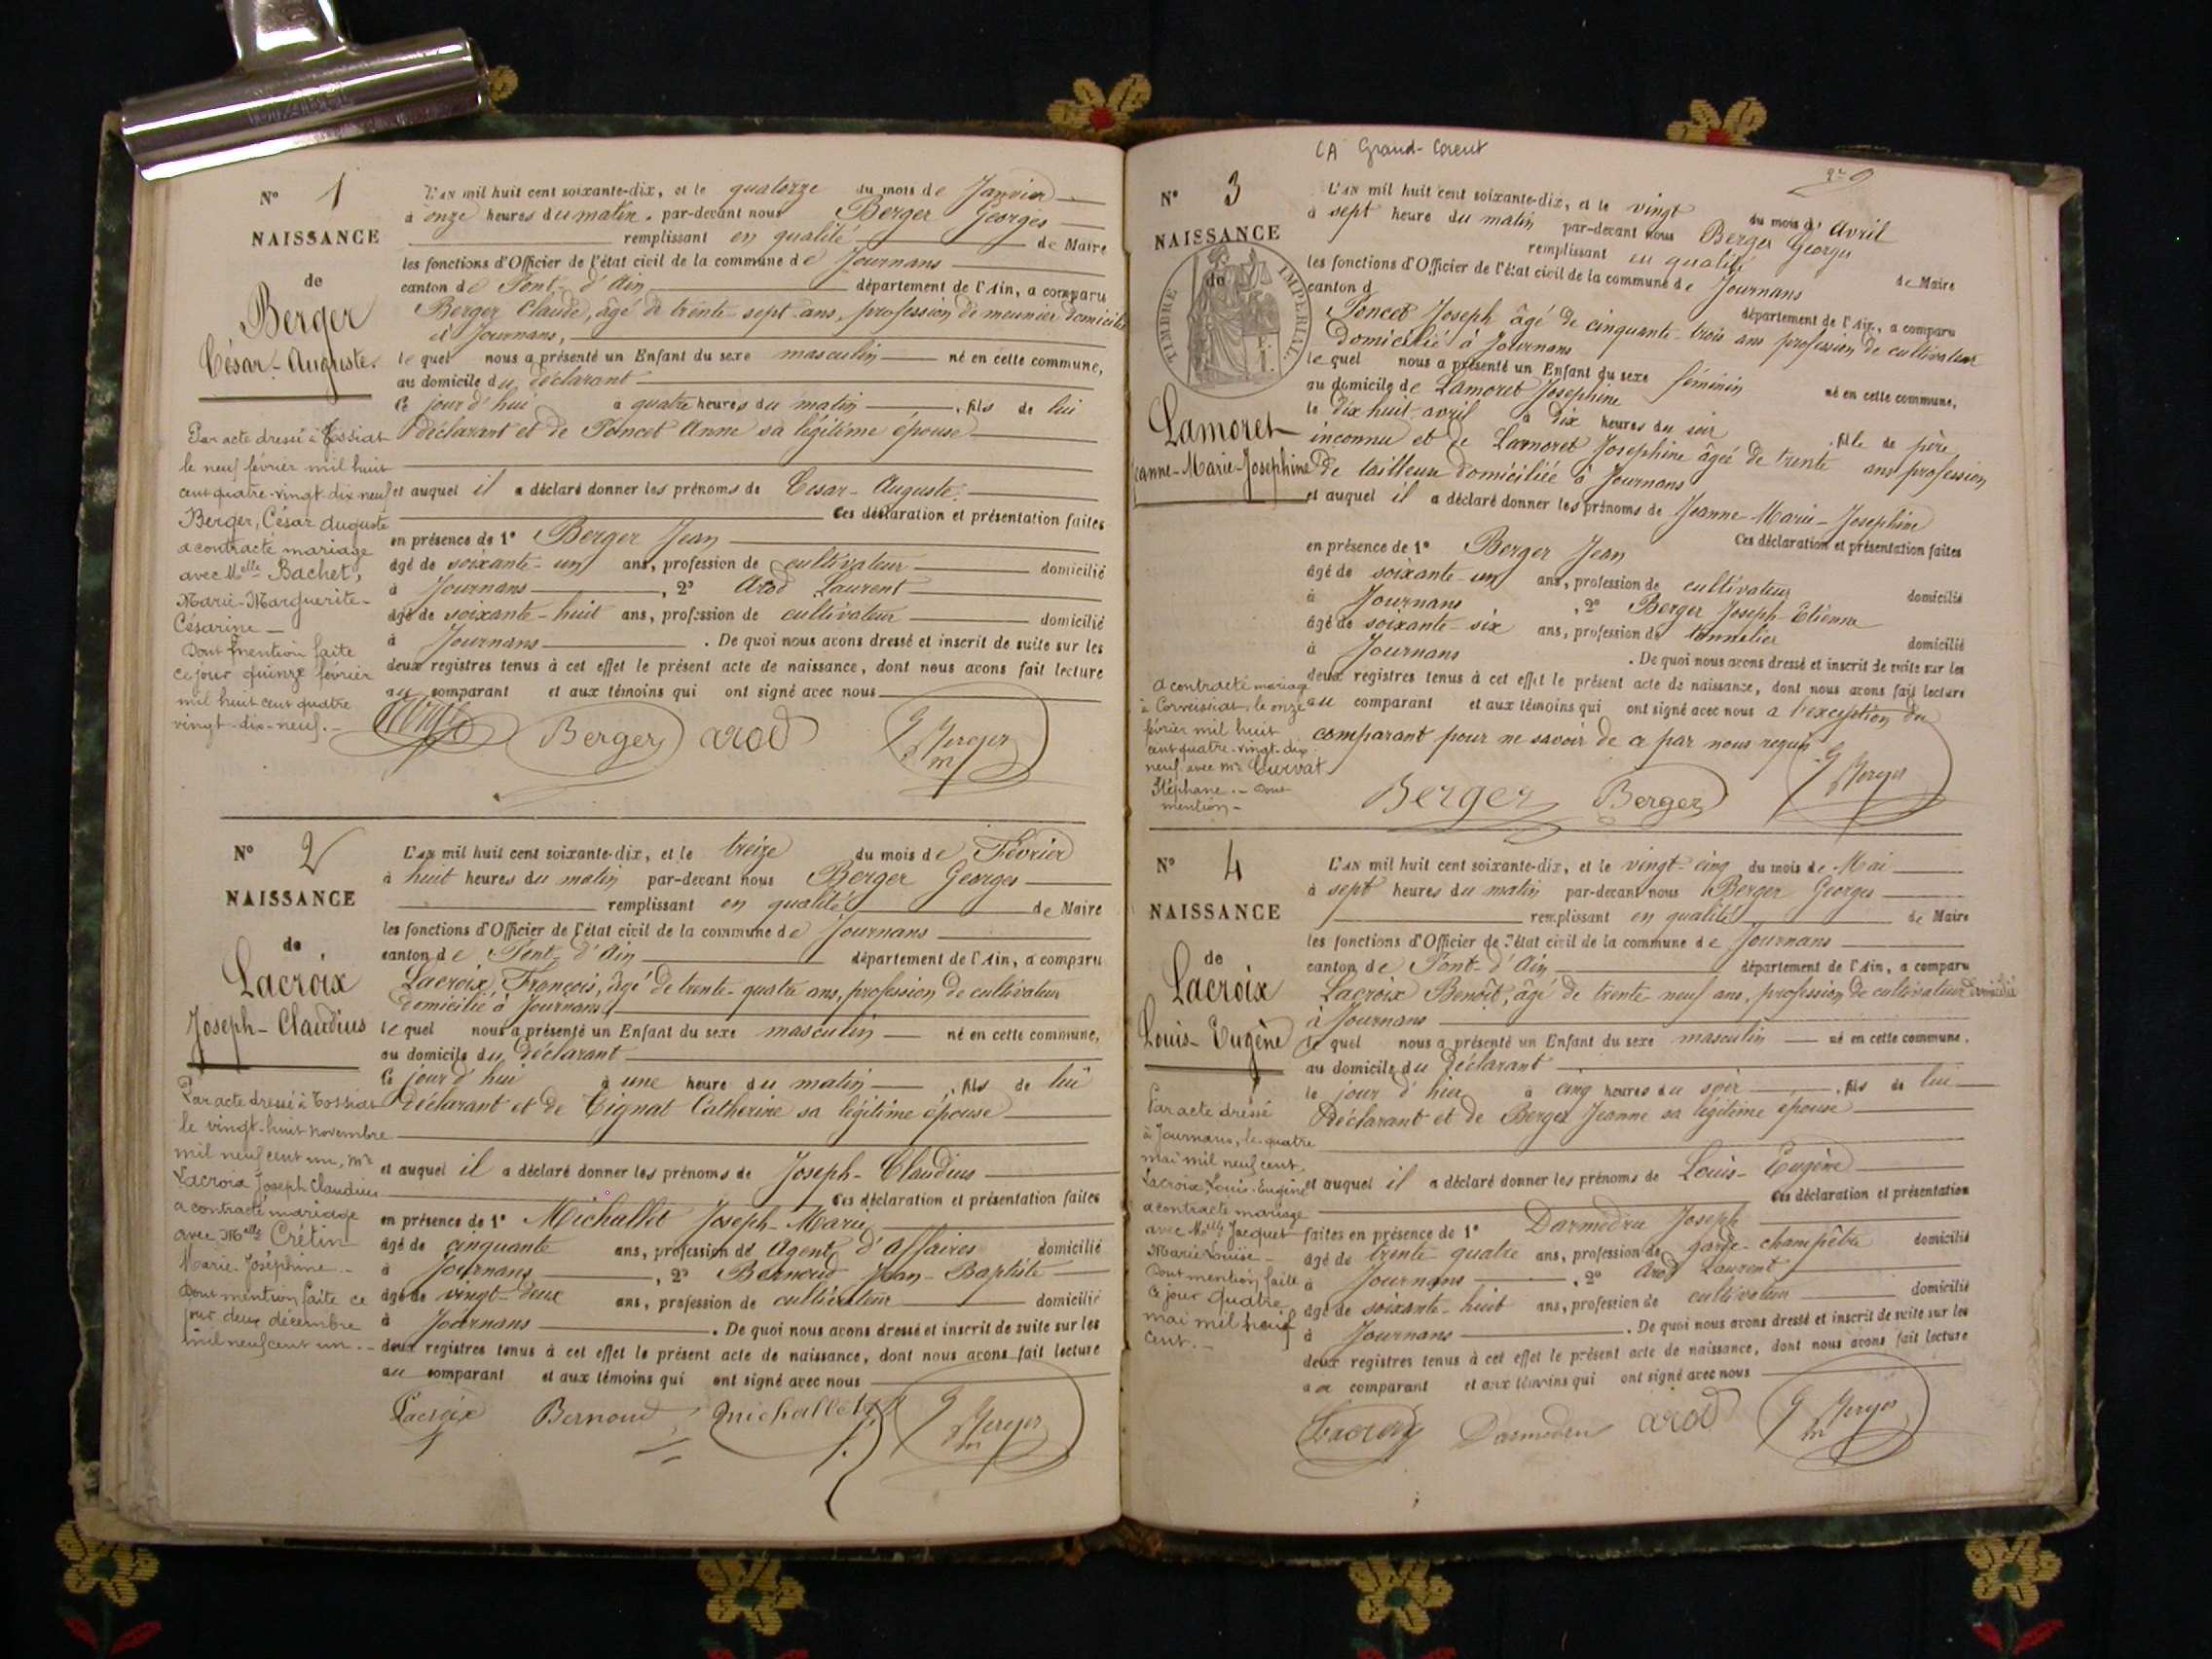 N° 1
NAISSANCE
de
Berger
César-Auguste.
Par acte dressé à Tossiat
le neuf février mil huit
cent quatre-vingt-dix-neuf
Berger, César Auguste
a contracté mariage
avec Melle Bachet,
Marie-Marguerite-
Césarine —
Dont mention faite
ce jour quinze février
mil huit cent quatre
vingt-dix-neuf. —
L'AN mil huit cent soixante-dix, et le quatorze du mois de Janvier
à onze heures du matin, par-devant nous Berger Georges
remplissant en qualité de Maire
les fonctions d'Officier de l'état civil de la commune de Journans
canton de Pont-d'Ain département de l'Ain, a comparu
Berger Claude, âgé de trente-sept ans, profession de meunier domicilié
à Journans,
lequel nous a présenté un Enfant du sexe masculin né en cette commune,
au domicile du déclarant
Ce jour d'hui à quatre heures du matin, fils de lui
déclarant et de Poncet Anne sa légitime épouse
et auquel il a déclaré donner les prénoms de Cesar-Auguste.
Ces déclaration et présentation faites
en présence de 1° Berger Jean
âgé de soixante-un ans, profession de cultivateur domicilié
à Journans, 2° Arod Laurent
âgé de soixante-huit ans, profession de cultivateur domicilié
à Journans. De quoi nous avons dressé et inscrit de suite sur les
deux registres tenus à cet effet le présent acte de naissance, dont nous avons fait lecture
au comparant et aux témoins qui ont signé avec nous
Berger arod G Berger
m
N° 2
NAISSANCE
de
Lacroix
Joseph-Claudius
Par acte dressé à Tossiat
le vingt-huit novembre
mil neuf cent un, Mr
Lacroix Joseph Claudius
a contracté mariage
avec Melle Crétin
Marie-Joséphine. —
Dont mention faite ce
jour deux décembre
mil neuf cent un. —
L'AN mil huit cent soixante-dix, et le treize du mois de Février
à huit heures du matin par-devant nous Berger Georges
remplissant en qualité de Maire
les fonctions d'Officier de l'état civil de la commune de Journans
canton de Pont-d'Ain département de l'Ain, a comparu
Lacroix François, âgé de trente-quatre ans, profession de cultivateur
domicilié à Journans,
lequel nous a présenté un Enfant du sexe masculin né en cette commune,
au domicile du déclarant
Ce jour d'hui à une heure du matin, fils de lui
déclarant et de Tignat Catherine sa légitime épouse
et auquel il a déclaré donner les prénoms de Joseph-Claudius
Ces déclaration et présentation faites
en présence de 1° Michallet Joseph-Marie
âgé de cinquante ans, profession de Agent d'affaires domicilié
à Journans, 2° Bernoud Jean-Baptiste
âgé de vingt-deux ans, profession de cultivateur domicilié
à Journans. De quoi nous avons dressé et inscrit de suite sur les
deux registres tenus à cet effet le présent acte de naissance, dont nous avons fait lecture
au comparant et aux témoins qui ont signé avec nous
Lacroix Bernoud Michallet G Berger
m
CA Grand-Corent
N° 3
NAISSANCE
de
TIMBRE IMPERIAL.
Lamoret
Jeanne-Marie-Josephine
a contracté mariage
à Corveissiat, le onze
février mil huit
cent quatre-vingt-dix-
neuf avec Mr Curvat
Stéphane. — Dont
mention —
L'AN mil huit cent soixante-dix, et le vingt du mois d'Avril
à sept heure du matin par-devant nous Berger Georges
remplissant en qualité de Maire
les fonctions d'Officier de l'état civil de la commune de Journans
canton d département de l'Ain, a comparu
Poncet Joseph âgé de cinquante-trois ans profession de cultivateur
domicilié à Journans
lequel nous a présenté un Enfant du sexe féminin né en cette commune,
au domicile de Lamoret Josephine
le dix huit avril à dix heures du soir, fille de père
inconnu et de Lamoret Josephine âgée de trente ans profession
de tailleuse domiciliée à Journans
et auquel il a déclaré donner les prénoms de Jeanne-Marie-Josephine
Ces déclaration et présentation faites
en présence de 1° Berger Jean
âgé de soixante-un ans, profession de cultivateur domicilié
à Journans, 2° Berger Joseph-Etienne
âgé de soixante-six ans, profession de tonnelier domicilié
à Journans. De quoi nous avons dressé et inscrit de suite sur les
deux registres tenus à cet effet le présent acte de naissance, dont nous avons fait lecture
au comparant et aux témoins qui ont signé avec nous a l'exception du
comparant pour ne savoir de ce par nous requis
Berger Berger G Berger
N° 4
NAISSANCE
de
Lacroix
Louis-Eugène
Par acte dressé
à Journans, le quatre
mai mil neuf cent,
Lacroix, Louis-Eugène
a contracté mariage
avec Melle Jacquet
Marie Louise —
Dont mention faite
ce jour quatre
mai mil neuf
cent. —
L'AN mil huit cent soixante-dix, et le vingt-cinq du mois de Mai
à sept heures du matin par-devant nous Berger Georges
remplissant en qualité de Maire
les fonctions d'Officier de l'état civil de la commune de Journans
canton de Pont-d'Ain département de l'Ain, a comparu
Lacroix Benoît, âgé de trente-neuf ans, profession de cultivateur domicilié
à Journans
lequel nous a présenté un Enfant du sexe masculin né en cette commune,
au domicile du déclarant
le jour d'hier à cinq heures du soir, fils de lui
déclarant et de Berger Jeanne sa légitime épouse
et auquel il a déclaré donner les prénoms de Louis-Eugène
Ces déclaration et présentation
faites en présence de 1° Darmedru Joseph
âgé de trente-quatre ans, profession de garde-champêtre domicilié
à Journans, 2° Arod Laurent
âgé de soixante-huit ans, profession de cultivateur domicilié
à Journans. De quoi nous avons dressé et inscrit de suite sur les
deux registres tenus à cet effet le présent acte de naissance, dont nous avons fait lecture
au comparant et aux témoins qui ont signé avec nous
Lacroix Darmedru arod G Berger
m